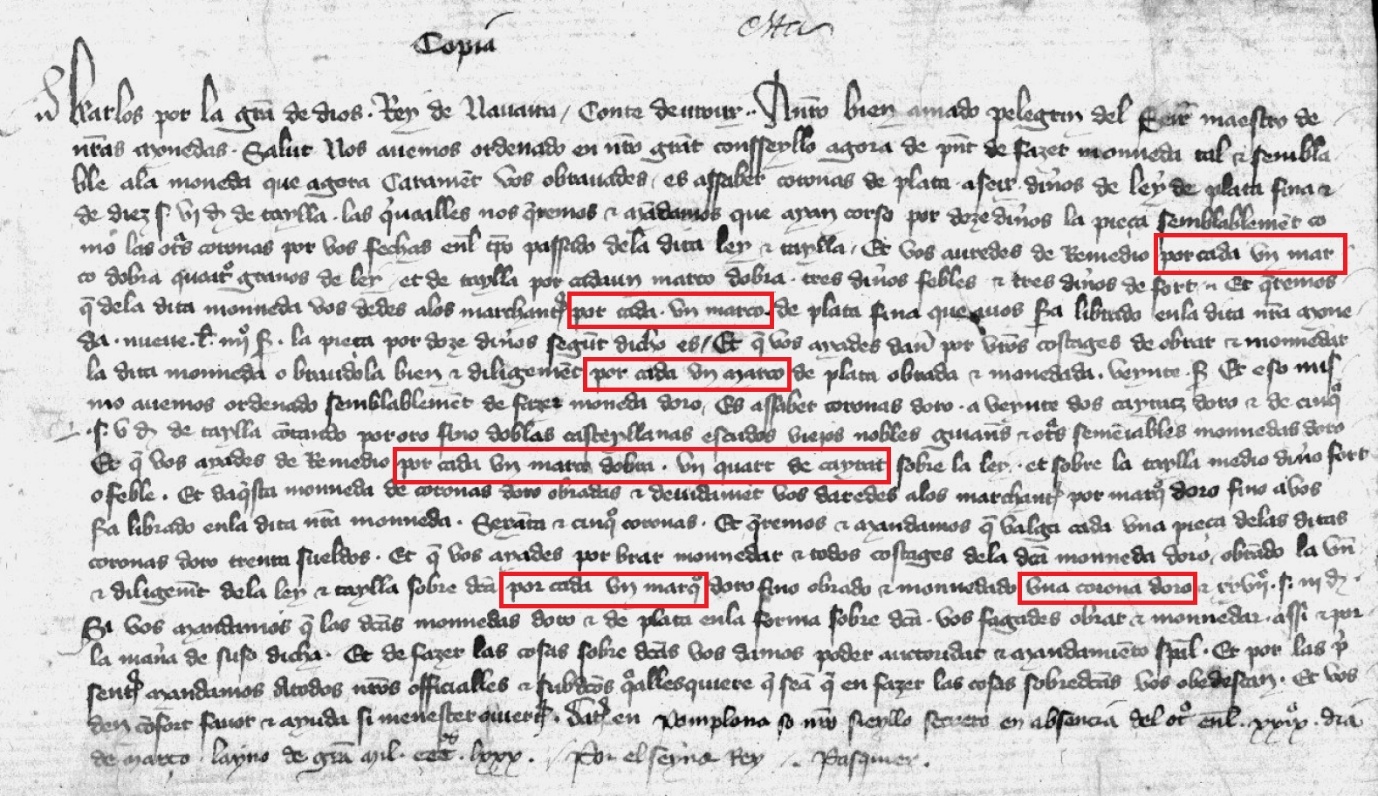 Copia
Karlos por la grã de dios. Rey de Nauarra / Conte deureux. A nr̃o bien amado pelegrin del Seyr̃ maestro de
nr̃as monedas. Salut Nos auemos ordenado en nr̃o grãt consseyllo agora de pñt de fazer monneda tal & sembla
ble ala moneda que agora vos obrauades / es assaber coronas de plata a seis dineros de ley de plata fina &
de diez s. vj d. de taylla. las quoalles nos q̃remos & mãdamos que ayan corso por doze dineros la pieça semblablemẽt co
mo las otr̃s coronas por vos fechas enl tp̃o passado dela dita ley & taylla / Et vos auredes de Remedio por cada vn mar
co dobra quoatro granos de ley et de taylla por cadaun marco dobra. tres dineros febles & tres dineros de fort. Et q̃remos
q̃ dela dita monneda vos dedes alos marchantes por cada vn marco de plata fina que a vos sera librado enla dita nr̃a mone
da. nueue. l. iiijº s. la pieça por doze dineros segũt dicho es / Et q̃ vos ayades por vr̃os costages de obrar & monnedar
la dita monneda obrandola bien & diligemẽt por cada vn marco de plata obrada & monedada. veynte. s. Et eso mis
mo auemos ordenado semblablemẽt de fazer moneda doro, Es assaber coronas doro. a veynte dos quatz doro & de cinqº
s. v d. de taylla cõtando por oro fino doblas casteyllanas escudos viejos nobles & otr̃s semẽiables monnedas doro
Et q̃ vos ayades de Remedio por cada vn marco dobra. vn quart de cayrat sobre la ley. et sobre la taylla medio dinero fort
o feble. Et daq̃sta monneda de coronas doro obradas & deuidamẽt vos daredes alos marchantes por marqº doro fino a vos
sera librado enla dita nr̃a monneda. Sexãta & cinqº coronas. Et q̃remos & mandamos q̃ valga cada vna pieça delas ditas
coronas doro trenta sueldos. Et q̃ vos ayades por brar monnedar & todos costages dela dc̃a monneda doro, obrãdo la biẽ
& diligemẽt dela ley & taylla sobre dc̃a por cada vn marqº doro fino obrado & monnedado vna corona doro & s. iij d.
Si vos mandamos q̃ las dc̃as monnedas doro & de plata enla forma sobre dc̃a. vos fagades obrar & monnedar. assi & por
la man̄a de suso dicha. Et de fazer las cosas sobre dc̃as vos damos poder auctoridat & mandamiẽto sp̃al. Et por las p̃
sentes mandamos atodos nr̃os officialles & subditos q̃allesquiere q̃ seã q̃ en fazer las cosas sobredc̃as vos obedescan. Et vos
den cõfort fauor & ayuda si menester ouieredes. Dat̃ en Pomplona so nr̃o sieyllo secreto en absencia del otrº enl. xxxº. dia
de março. layno de grã mil. ccc. lxxx. / Por el seynor Rey. Pasquier.